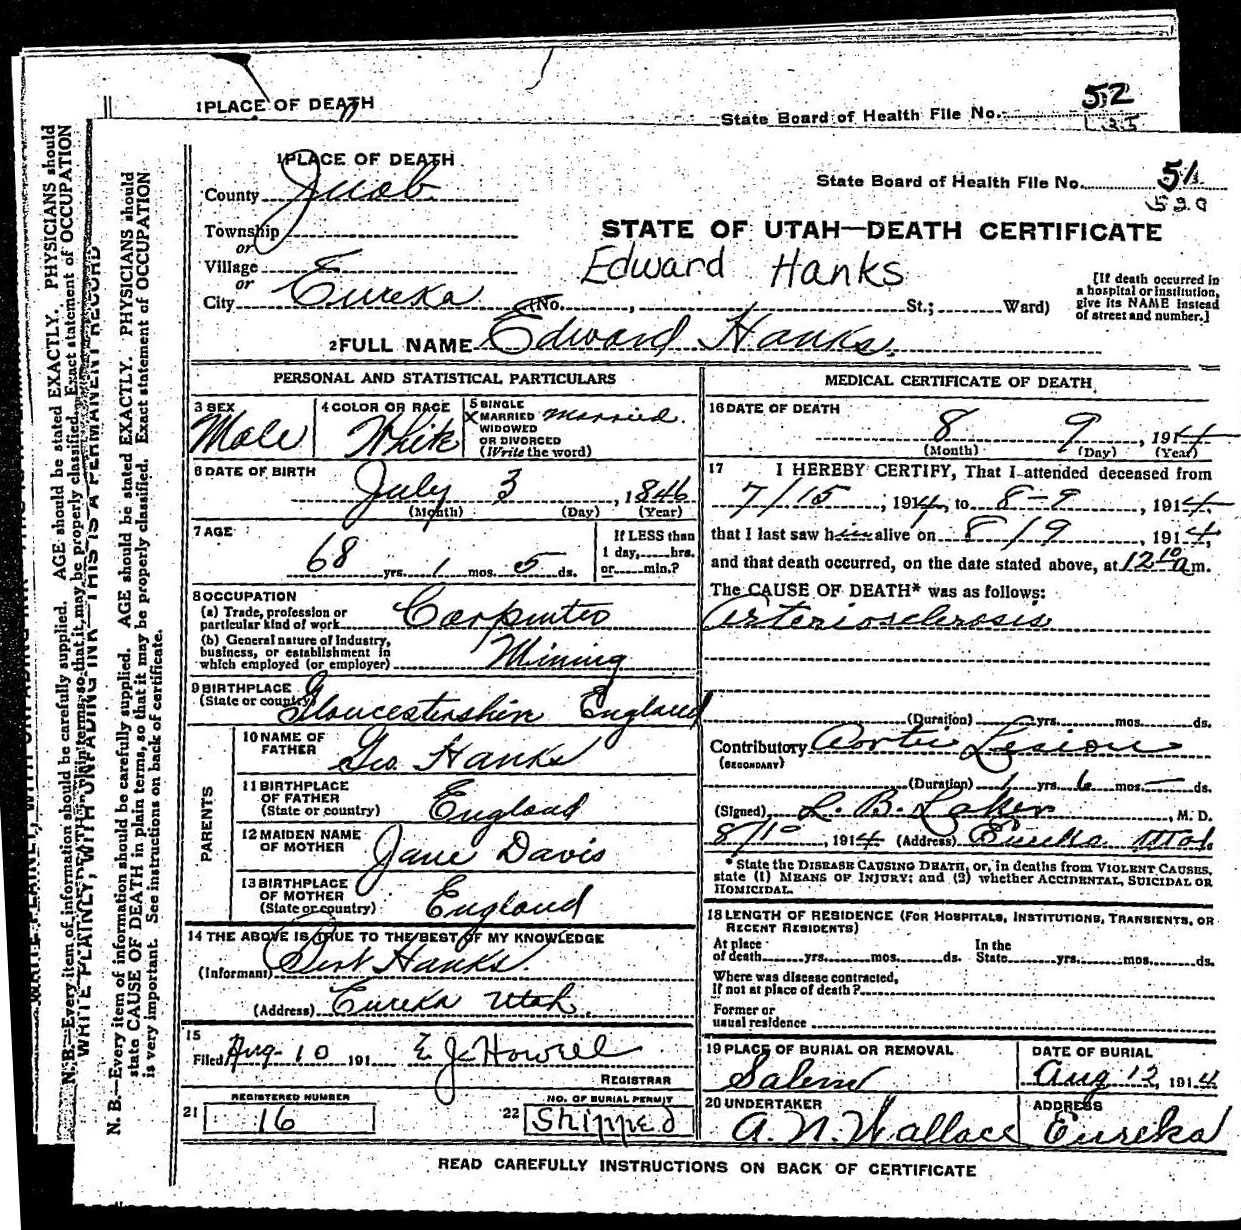 1 PLACE OF DEATH
State Board of Health File No. 52
1 PLACE OF DEATH
State Board of Health File No. 51
530
County Juab
STATE OF UTAH—DEATH CERTIFICATE
Township
or
Village
Edward Hanks
or
City Eureka (No. , St.; Ward)
[If death occurred in
a hospital or institution,
give its NAME instead
of street and number.]
2 FULL NAME Edward Hanks.
PERSONAL AND STATISTICAL PARTICULARS
3 SEX
Male
4 COLOR OR RACE
White
5 SINGLE
X MARRIED Married.
WIDOWED
OR DIVORCED
(Write the word)
6 DATE OF BIRTH
July 3, 1846
(Month) (Day) (Year)
7 AGE
68 yrs. 1 mos. 5 ds.
If LESS than
1 day, hrs.
or min.?
8 OCCUPATION
(a) Trade, profession or
particular kind of work Carpenter
(b) General nature of Industry,
business, or establishment in
which employed (or employer) Mining
9 BIRTHPLACE
(State or country) Gloucestershire England
PARENTS
10 NAME OF
FATHER Geo. Hanks
11 BIRTHPLACE
OF FATHER
(State or country) England
12 MAIDEN NAME
OF MOTHER Jane Davis
13 BIRTHPLACE
OF MOTHER
(State or country) England
14 THE ABOVE IS TRUE TO THE BEST OF MY KNOWLEDGE
(Informant) Bert Hanks.
(Address) Eureka Utah.
15
Filed Aug-10 191 E. J. Howell
REGISTRAR
REGISTERED NUMBER
21 16
NO. OF BURIAL PERMIT
22 Shipped
MEDICAL CERTIFICATE OF DEATH
16 DATE OF DEATH
8 9, 1914
(Month) (Day) (Year)
17 I HEREBY CERTIFY, That I attended deceased from
7/15, 1914, to 8-9, 1914.
that I last saw him alive on 8/9, 1914,
and that death occurred, on the date stated above, at 12 10 a m.
The CAUSE OF DEATH* was as follows:
Arteriosclerosis
(Duration) yrs. mos. ds.
Contributory Aortic Lesion
(SECONDARY)
(Duration) 1 yrs. 6 mos. — ds.
(Signed) L. B. Laker, M. D.
8/10, 1914 (Address) Eureka Utah.
* State the DISEASE CAUSING DEATH, or, in deaths from VIOLENT CAUSES,
state (1) MEANS OF INJURY; and (2) whether ACCIDENTAL, SUICIDAL OR
HOMICIDAL.
18 LENGTH OF RESIDENCE (FOR HOSPITALS, INSTITUTIONS, TRANSIENTS, OR
RECENT RESIDENTS)
At place
of death yrs. mos. ds.
In the
State yrs. mos. ds.
Where was disease contracted,
if not at place of death?
Former or
usual residence
19 PLACE OF BURIAL OR REMOVAL
Salem
DATE OF BURIAL
Aug 12, 1914
20 UNDERTAKER
A. N. Wallace
ADDRESS
Eureka
READ CAREFULLY INSTRUCTIONS ON BACK OF CERTIFICATE
N. B.—Every item of information should be carefully supplied. AGE should be stated EXACTLY. PHYSICIANS should
state CAUSE OF DEATH in plain terms, so that it may be properly classified. Exact statement of OCCUPATION
is very important. See instructions on back of certificate.
WRITE PLAINLY, WITH UNFADING INK—THIS IS A PERMANENT RECORD
N. B.—Every item of information should be carefully supplied. AGE should be stated EXACTLY. PHYSICIANS should